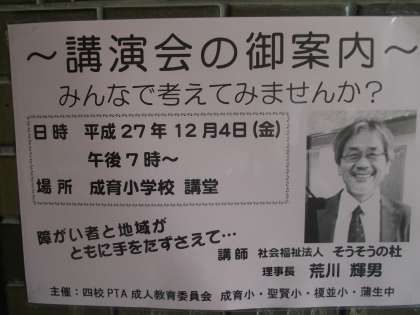 ～講演会の御案内～
みんなで考えてみませんか？
日時 平成27年12月4日(金)
午後7時～
場所 成育小学校 講堂
障がい者と地域が
ともに手をたずさえて…
講師 社会福祉法人 そうそうの杜
理事長 荒川 輝男
主催：四校PTA成人教育委員会 成育小・聖賢小・榎並小・蒲生中